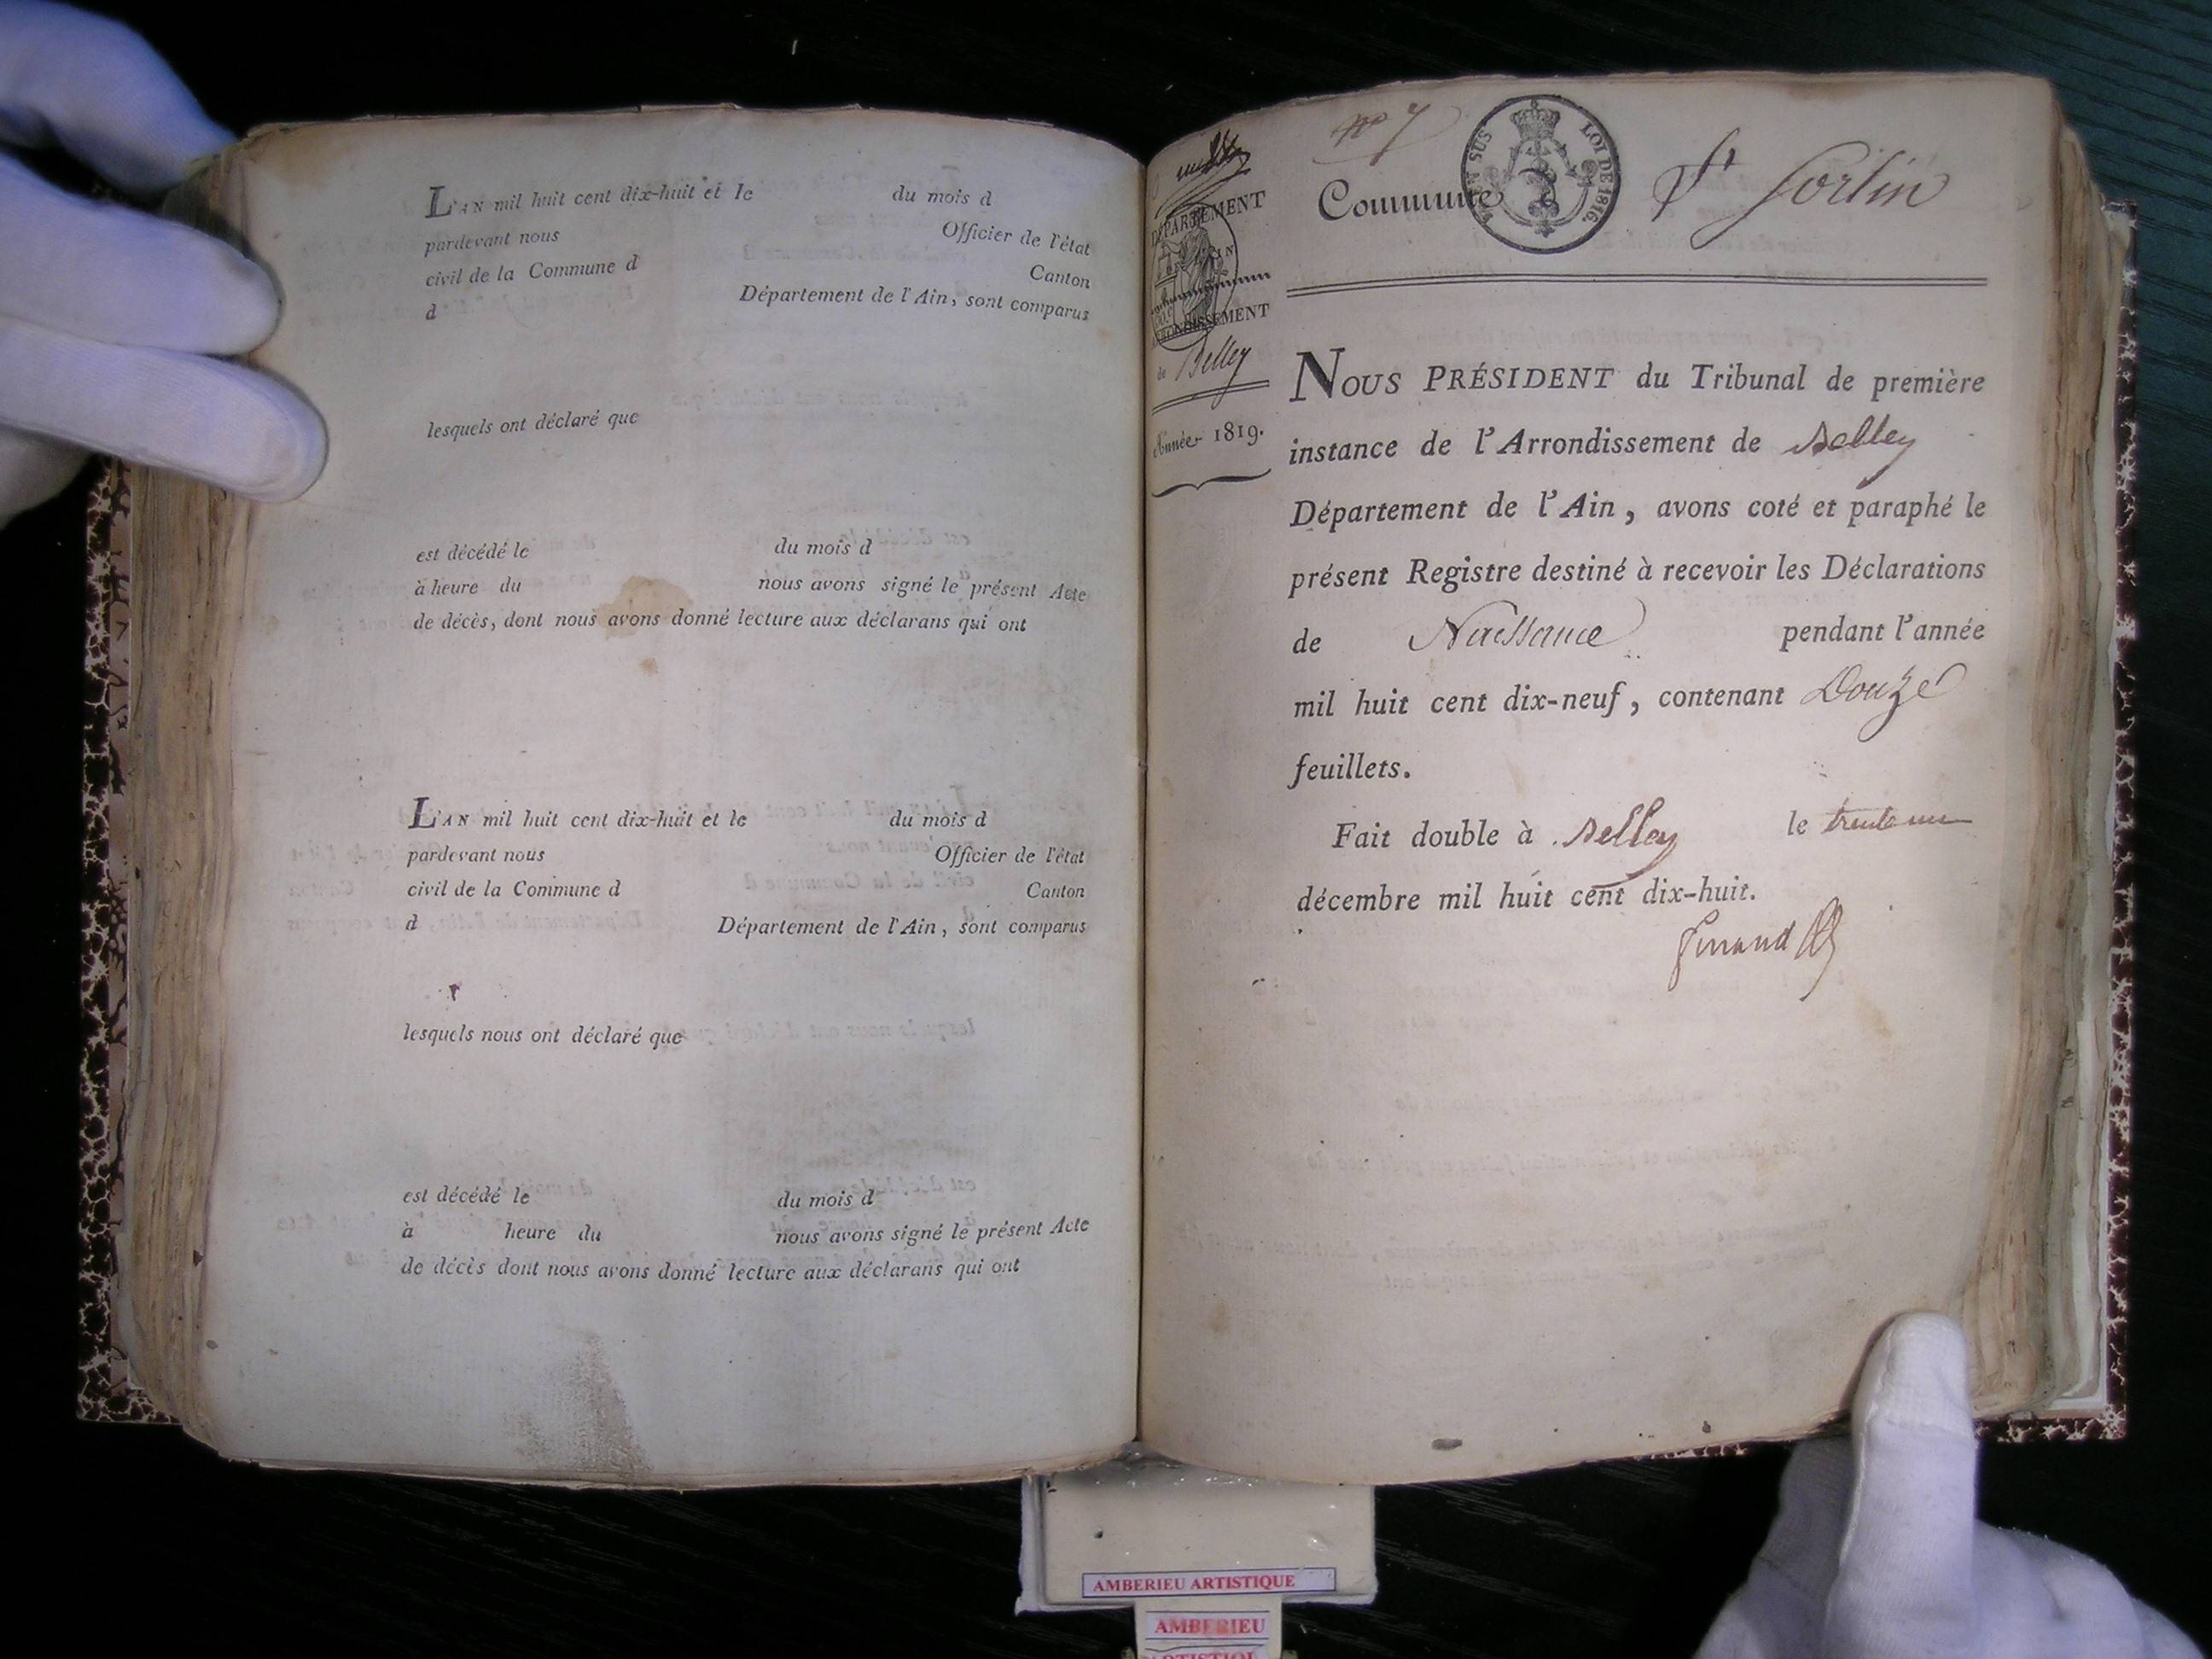 L'AN mil huit cent dix-huit et le du mois d
pardevant nous Officier de l'état
civil de la Commune d Canton
d Département de l'Ain, sont comparus
lesquels ont déclaré que
est décédé le du mois d
à heure du nous avons signé le présent Acte
de décès, dont nous avons donné lecture aux déclarans qui ont
L'AN mil huit cent dix-huit et le du mois d
pardevant nous Officier de l'état
civil de la Commune d Canton
d Département de l'Ain, sont comparus
lesquels nous ont déclaré que
est décédé le du mois d
à heure du nous avons signé le présent Acte
de décès dont nous avons donné lecture aux déclarans qui ont
no 7
LOI DE 1816.
Commune St Sorlin
DÉPARTEMENT
ARRONDISSEMENT
de Belley
Année 1819.
NOUS PRÉSIDENT du Tribunal de première
instance de l'Arrondissement de Belley
Département de l'Ain, avons coté et paraphé le
présent Registre destiné à recevoir les Déclarations
de Naissance pendant l'année
mil huit cent dix-neuf, contenant Douze
feuillets.
Fait double à Belley le trente un
décembre mil huit cent dix-huit.
AMBERIEU ARTISTIQUE
AMBERIEU
ARTISTIQUE